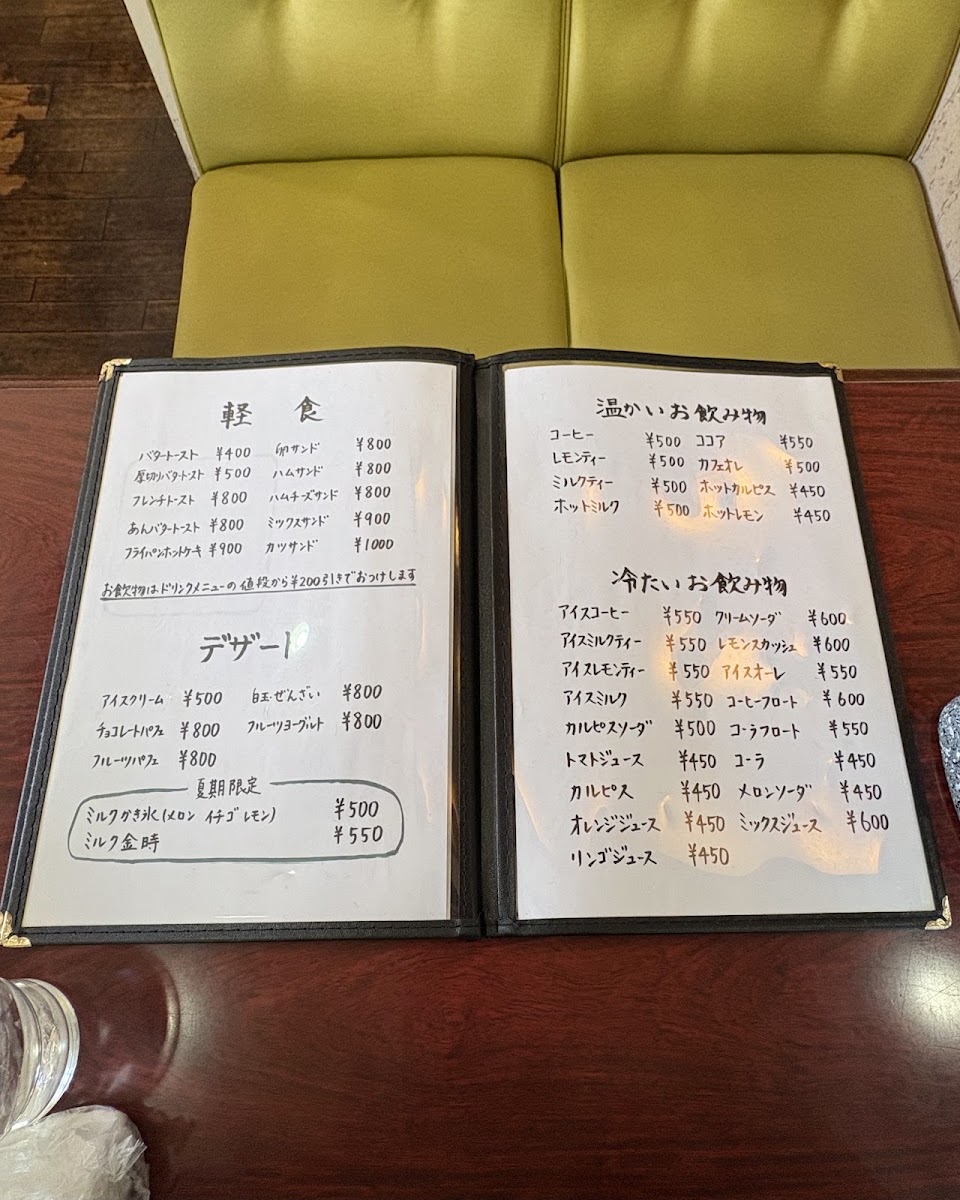 軽 食
バタートースト ¥400 卵サンド ¥800
厚切りバタートースト ¥500 ハムサンド ¥800
フレンチトースト ¥800 ハムチーズサンド ¥800
あんバタートースト ¥800 ミックスサンド ¥900
フライパンホットケーキ ¥900 カツサンド ¥1000
お飲物はドリンクメニューの値段から¥200引きでおつけします
デザート
アイスクリーム ¥500 白玉ぜんざい ¥800
チョコレートパフェ ¥800 フルーツヨーグルト ¥800
フルーツパフェ ¥800
夏期限定
ミルクかき氷(メロン イチゴ レモン) ¥500
ミルク金時 ¥550
温かいお飲み物
コーヒー ¥500 ココア ¥550
レモンティー ¥500 カフェオレ ¥500
ミルクティー ¥500 ホットカルピス ¥450
ホットミルク ¥500 ホットレモン ¥450
冷たいお飲み物
アイスコーヒー ¥550 クリームソーダ ¥600
アイスミルクティー ¥550 レモンスカッシュ ¥600
アイスレモンティー ¥550 アイスオーレ ¥550
アイスミルク ¥550 コーヒーフロート ¥600
カルピスソーダ ¥500 コーラフロート ¥550
トマトジュース ¥450 コーラ ¥450
カルピス ¥450 メロンソーダ ¥450
オレンジジュース ¥450 ミックスジュース ¥600
リンゴジュース ¥450